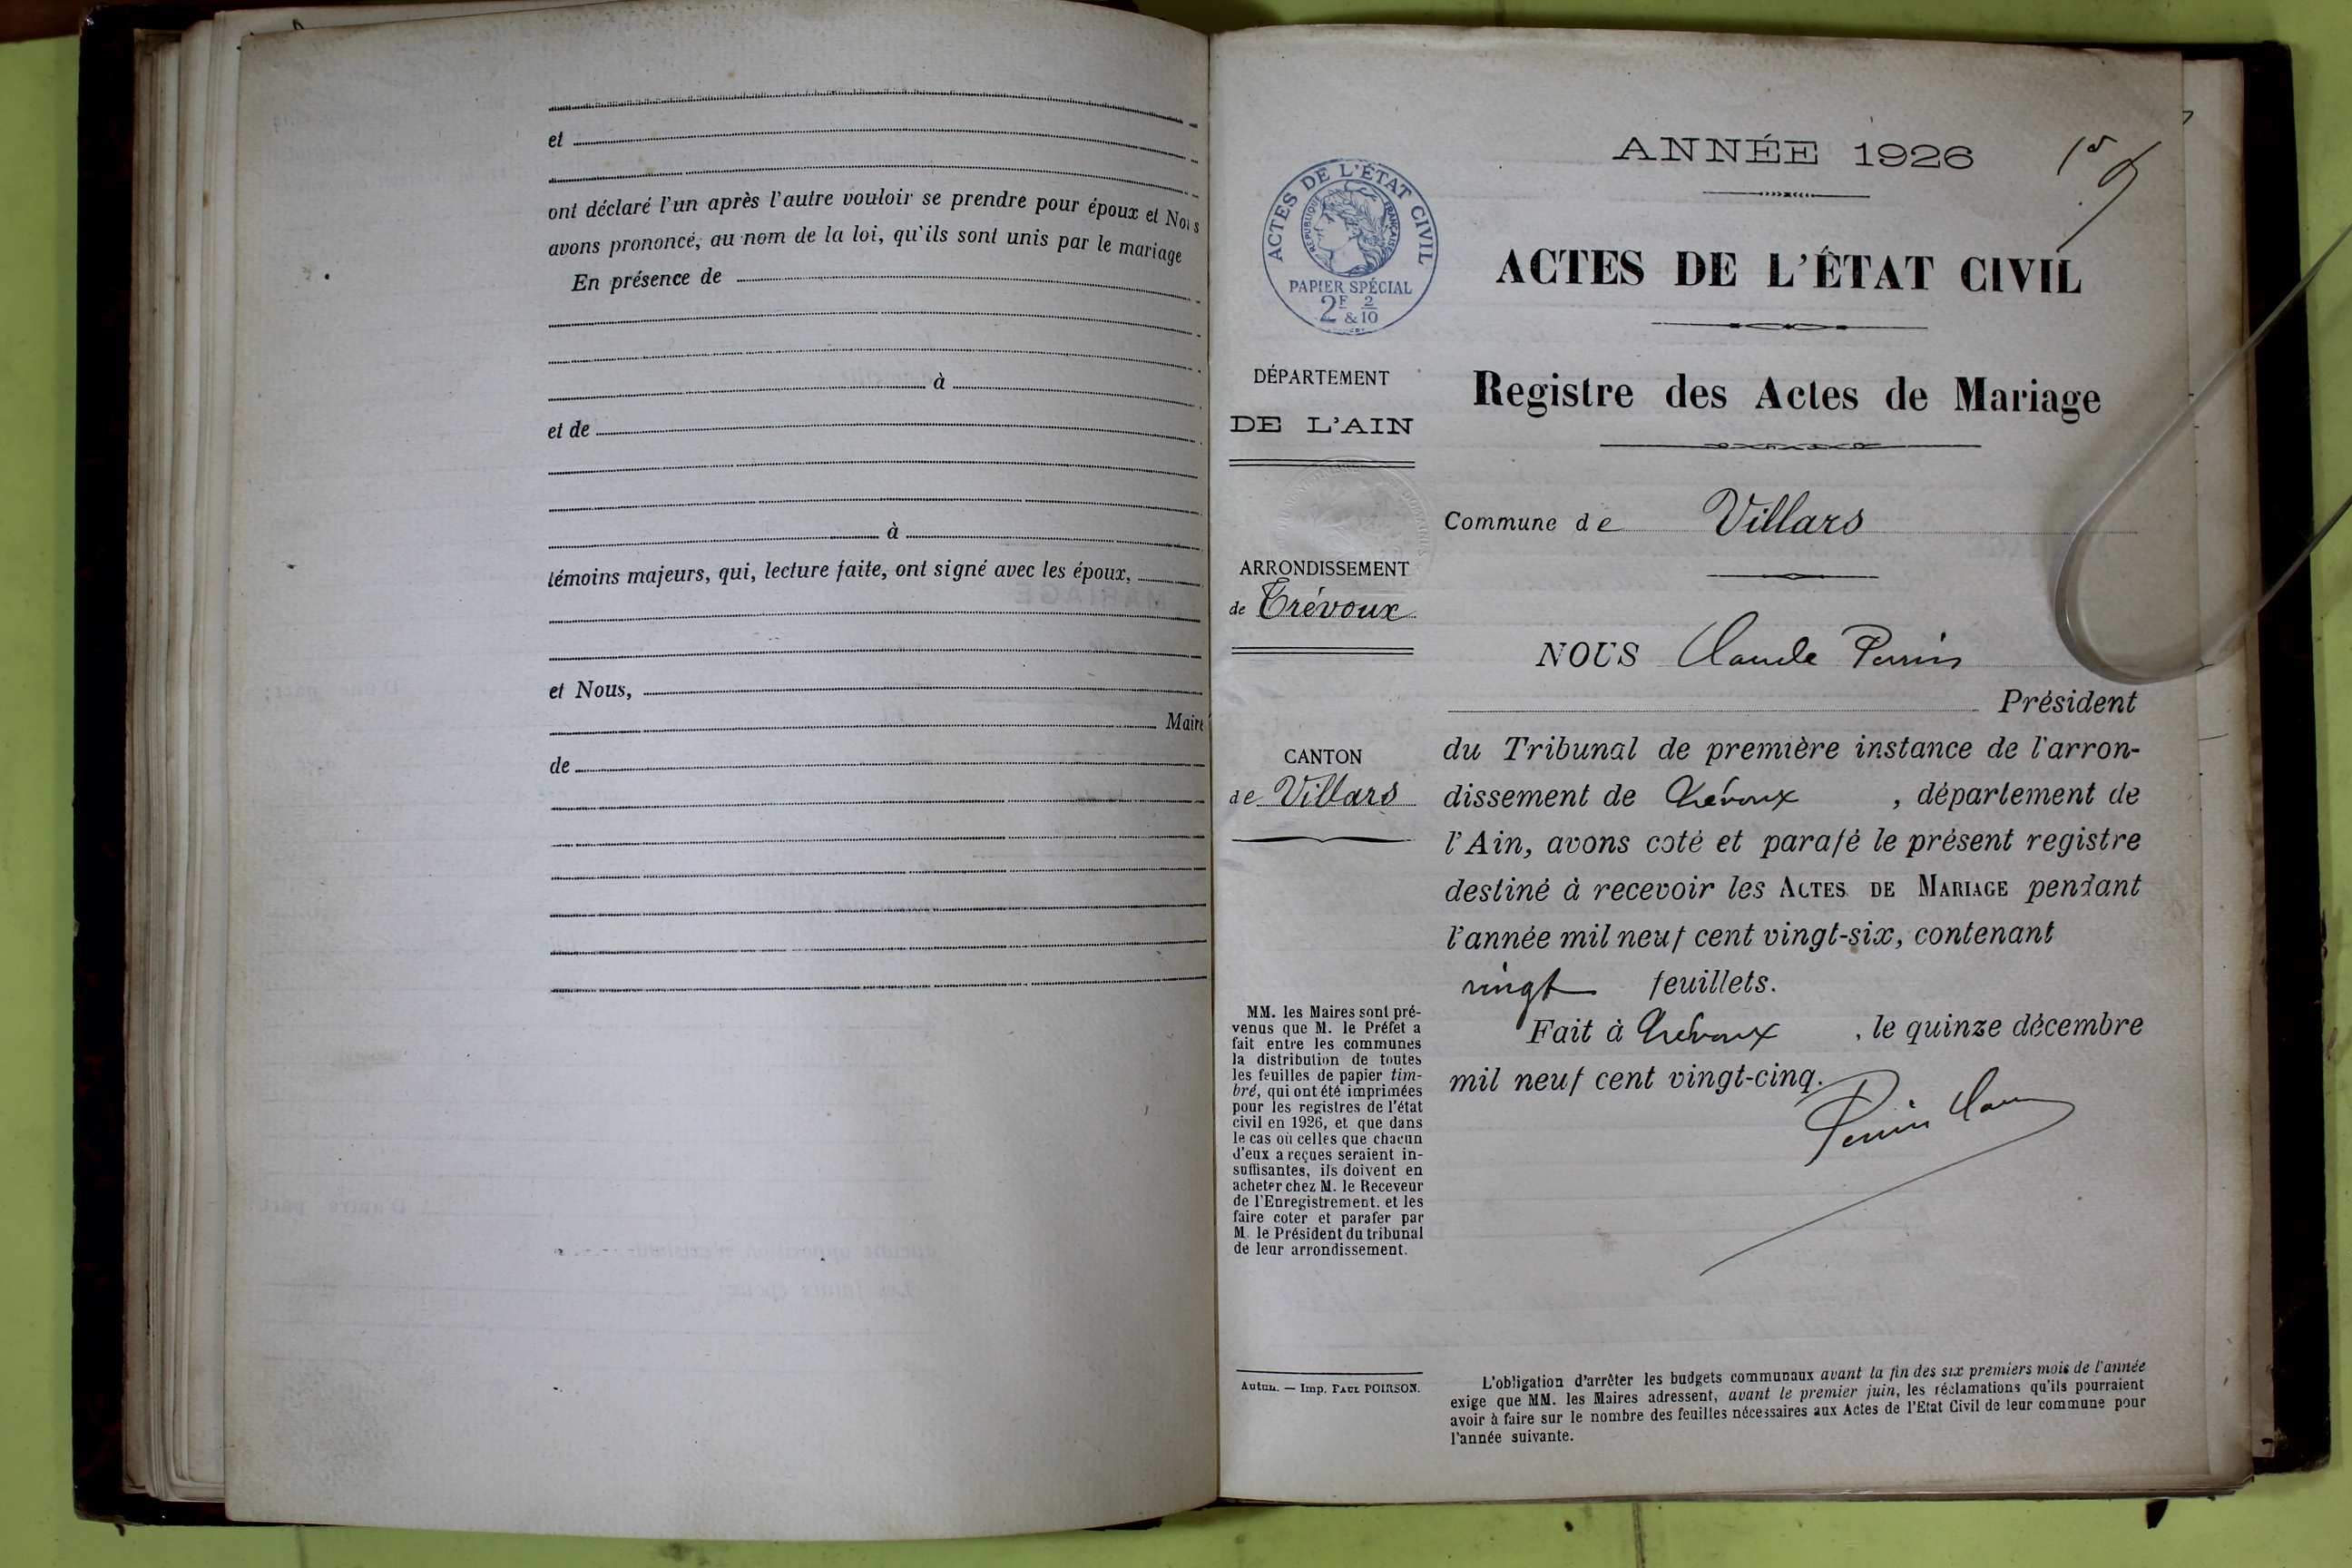 et
ont déclaré l'un après l'autre vouloir se prendre pour époux et Nous
avons prononcé, au nom de la loi, qu'ils sont unis par le mariage
En présence de
à
et de
à
témoins majeurs, qui, lecture faite, ont signé avec les époux,
et Nous,
Maire
de
ANNÉE 1926
ACTES DE L'ÉTAT CIVIL
RÉPUBLIQUE FRANÇAISE
PAPIER SPÉCIAL
2F & 2/10
ACTES DE L'ÉTAT CIVIL
Registre des Actes de Mariage
DÉPARTEMENT
DE L'AIN
Commune de Villars
ARRONDISSEMENT
de Trévoux
NOUS Claude Perrin
Président
CANTON
de Villars
du Tribunal de première instance de l'arron-
dissement de Trévoux , département de
l'Ain, avons coté et parafé le présent registre
destiné à recevoir les ACTES DE MARIAGE pendant
l'année mil neuf cent vingt-six, contenant
vingt feuillets.
Fait à Trévoux , le quinze décembre
mil neuf cent vingt-cinq.
Perrin
MM. les Maires sont pré-
venus que M. le Préfet a
fait entre les communes
la distribution de toutes
les feuilles de papier tim-
bré, qui ont été imprimées
pour les registres de l'état
civil en 1926, et que dans
le cas où celles que chacun
d'eux a reçues seraient in-
suffisantes, ils doivent en
acheter chez M. le Receveur
de l'Enregistrement, et les
faire coter et parafer par
M. le Président du tribunal
de leur arrondissement.
Autun. — Imp. PAUL POIRSON.
L'obligation d'arrêter les budgets communaux avant la fin des six premiers mois de l'année
exige que MM. les Maires adressent, avant le premier juin, les réclamations qu'ils pourraient
avoir à faire sur le nombre des feuilles nécessaires aux Actes de l'Etat Civil de leur commune pour
l'année suivante.